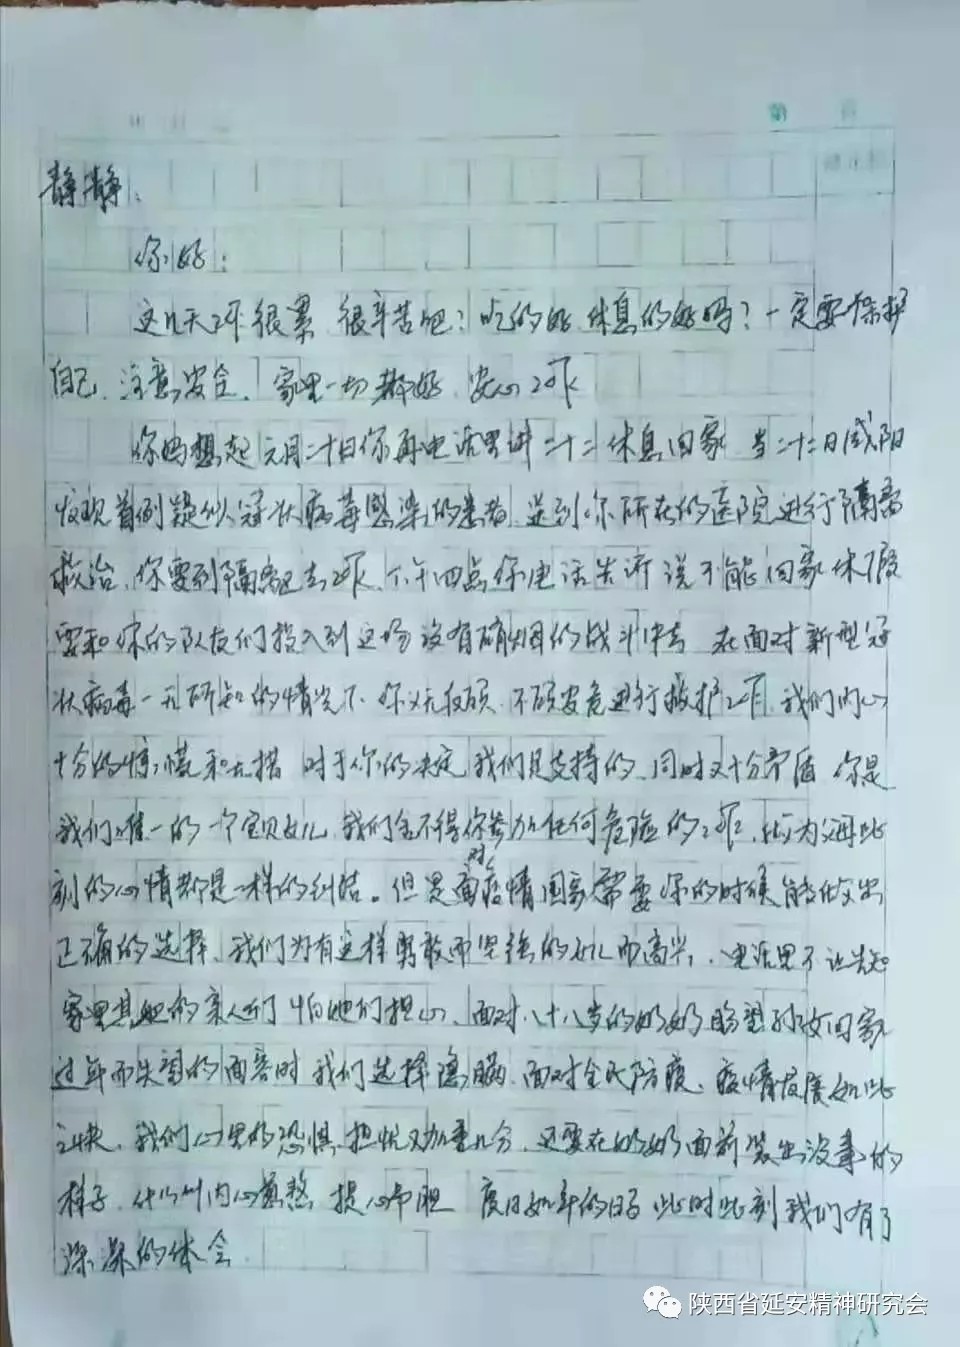 静静：
你好：
这几天工作很累 很辛苦吧？吃的好 休息的好吗？一定要保护
自己，注意安全，家里一切都好，安心工作
你妈想起元月二十日你再电话里讲二十二休息回家 当二十二日咸阳
发现首例疑似冠状病毒感染的患者，送到你所在的医院进行隔离
救治，你要到隔离区去工作，下午四点你电话告诉说不能回家休假
要和你的队友们投入到这场没有硝烟的战斗中去 在面对新型冠
状病毒一无所知的情况下，你义无反顾，不顾安危进行救护工作，我们内心
十分的惊慌和无措 对于你的决定，我们是支持的，同时又十分矛盾 你是
我们唯一的一个宝贝女儿，我们舍不得你参加任何危险的工作，做为父母此
刻的心情都是一样的纠结。但是面对疫情国家需要你的时候能做出
正确的选择，我们为有这样勇敢而坚强的女儿而高兴，电话里不让告知
家里其她的亲人们 怕她们担心，面对八十八岁的奶奶盼望孙女回家
过年而失望的面容时 我们选择隐瞒，面对全民防疫，疫情发展如此
之快，我们心里的恐惧、担忧又加重几分，还要在奶奶面前装出没事的
样子，什么叫内心煎熬 提心吊胆 度日如年的日子 此时此刻我们有了
深深的体会
陕西省延安精神研究会